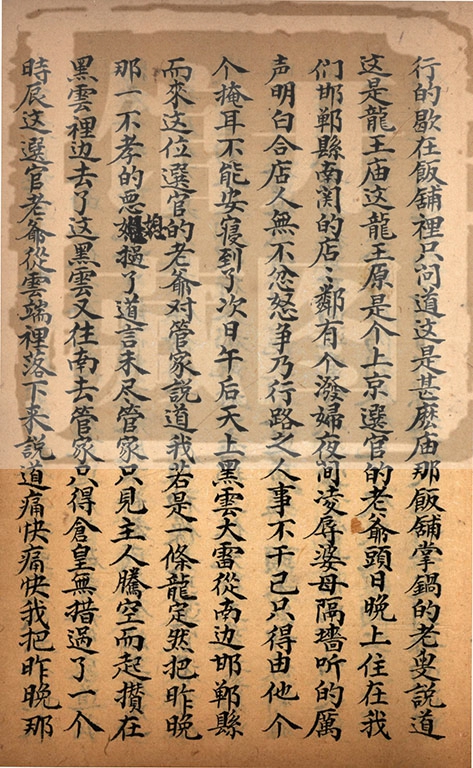 行的歇在飯舖裡只问道这是甚麽庙那飯舖掌鍋的老叟説道
这是龍王庙这龍王原是个上京選官的老爺頭日晩上住在我
们邯鄲縣南関的店〻鄰有个潑婦夜间凌辱婆母隔墻听的厲
声明白合店人無不忿怒争乃行路之人事不干己只得由他个
个掩耳不能安寝到了次日午后天上黑雲大雷從南边邯鄲縣
而來这位選官的老爺对管家説道我若是一條龍定然把昨晩
那一不孝的悪媳撾了道言未尽管家只見主人騰空而起攅在
黑雲裡边去了这黑雲又往南去管家只得倉皇無措過了一个
時辰这選官老爺從雲端裡落下来説道痛快痛快我把昨晩那